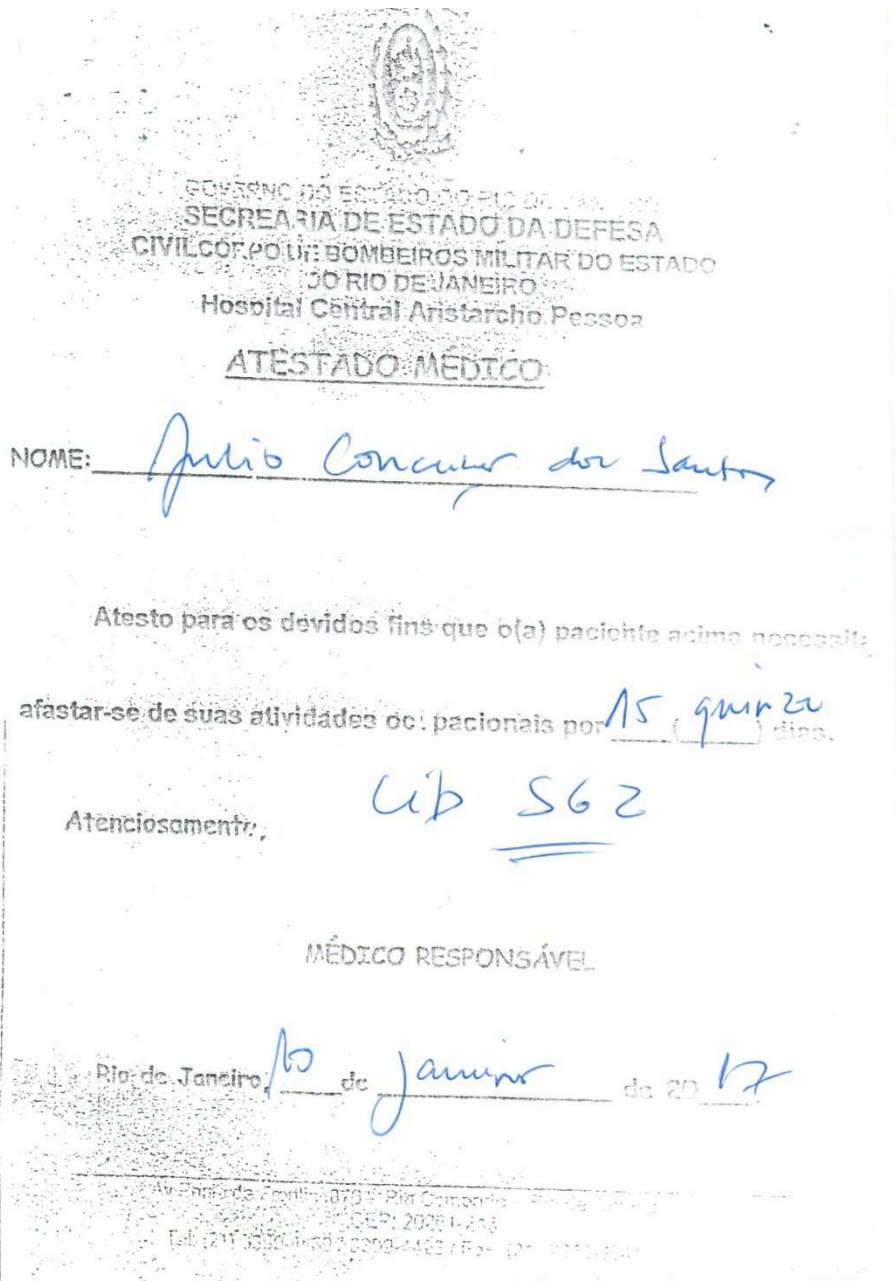 GOVERNO DO ESTADO DO RIO DE
SECREARIA DE ESTADO DA DEFESA
CIVILCORPO DE BOMBEIROS MILITAR DO ESTADO
DO RIO DE JANEIRO
Hospital Central Aristarcho Pessoa
ATESTADO MÉDICO
NOME: Julio dos Santos
Atesto para os devidos fins que o(a) paciente acima necessita
afastar-se de suas atividades ocupacionais por 15 (quinze) dias.
Cid S62
Atenciosamente,
MÉDICO RESPONSÁVEL
Rio de Janeiro, 10 de Janeiro de 20 17
CEP: 20261-
Tel: (21)